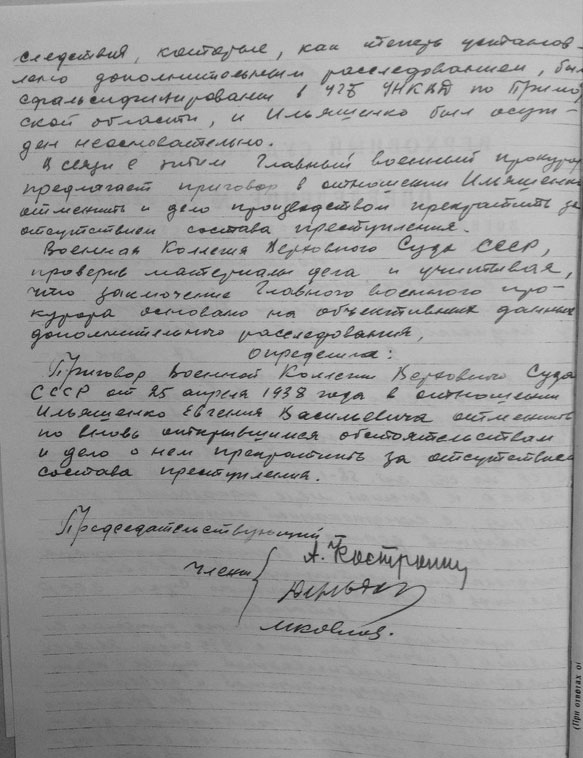 следствия, которые, как теперь установ-
лено дополнительным расследованием, был
сфальсифицированы в УГБ УНКВД по Примор
ской области, и Ильященко был осуж-
ден неосновательно.
В связи с этим Главный военный прокурор
предлагает приговор в отношении Ильященко
отменить и дело производством прекратить за
отсутствием состава преступления.
Военная Коллегия Верховного Суда СССР,
проверив материалы дела и учитывая,
что заключение Главного военного про-
курора основано на объективных данных
дополнительного расследования,
определила:
Приговор Военной Коллегии Верховного Суда
СССР от 25 апреля 1938 года в отношении
Ильященко Евгения Васильевича отменить
по вновь открывшимся обстоятельствам
и дело о нем прекратить за отсутствием
состава преступления.
Председательствующий
Члены
А. Костромин
(При ответах о